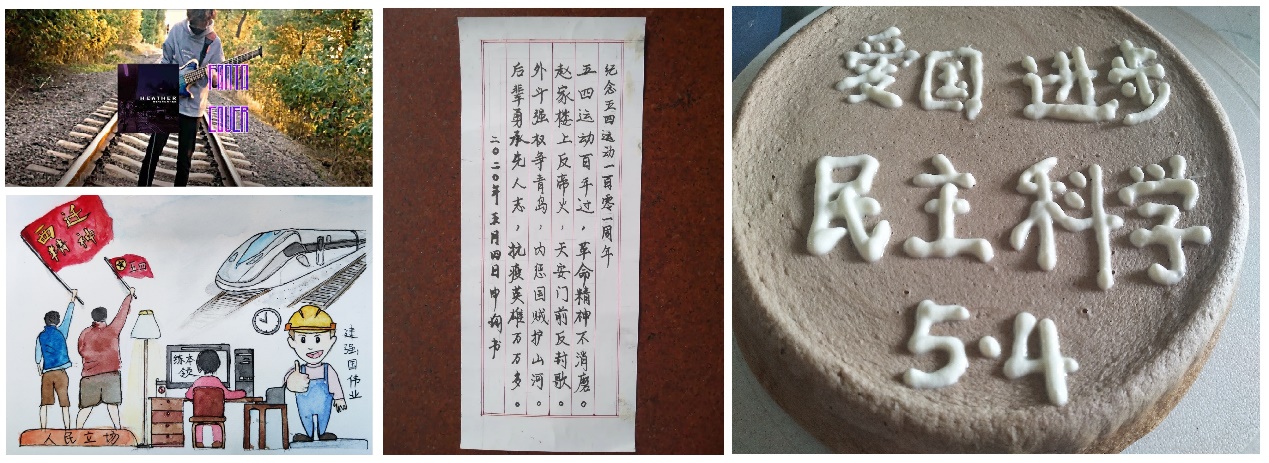 HEATHER
COVER
西迁
精神
五四
练本
领
建强国伟业
人民立场
纪念五四运动一百零一周年
五四运动百年过，革命精神不消磨。
赵家楼上反帝火，天安门前反封歌。
外斗强权争青岛，内惩国贼护山河。
后辈勇承先人志，抗疫英雄万万多。
二〇二〇年五月四日申翔书
爱国 进步
民主科学
5·4